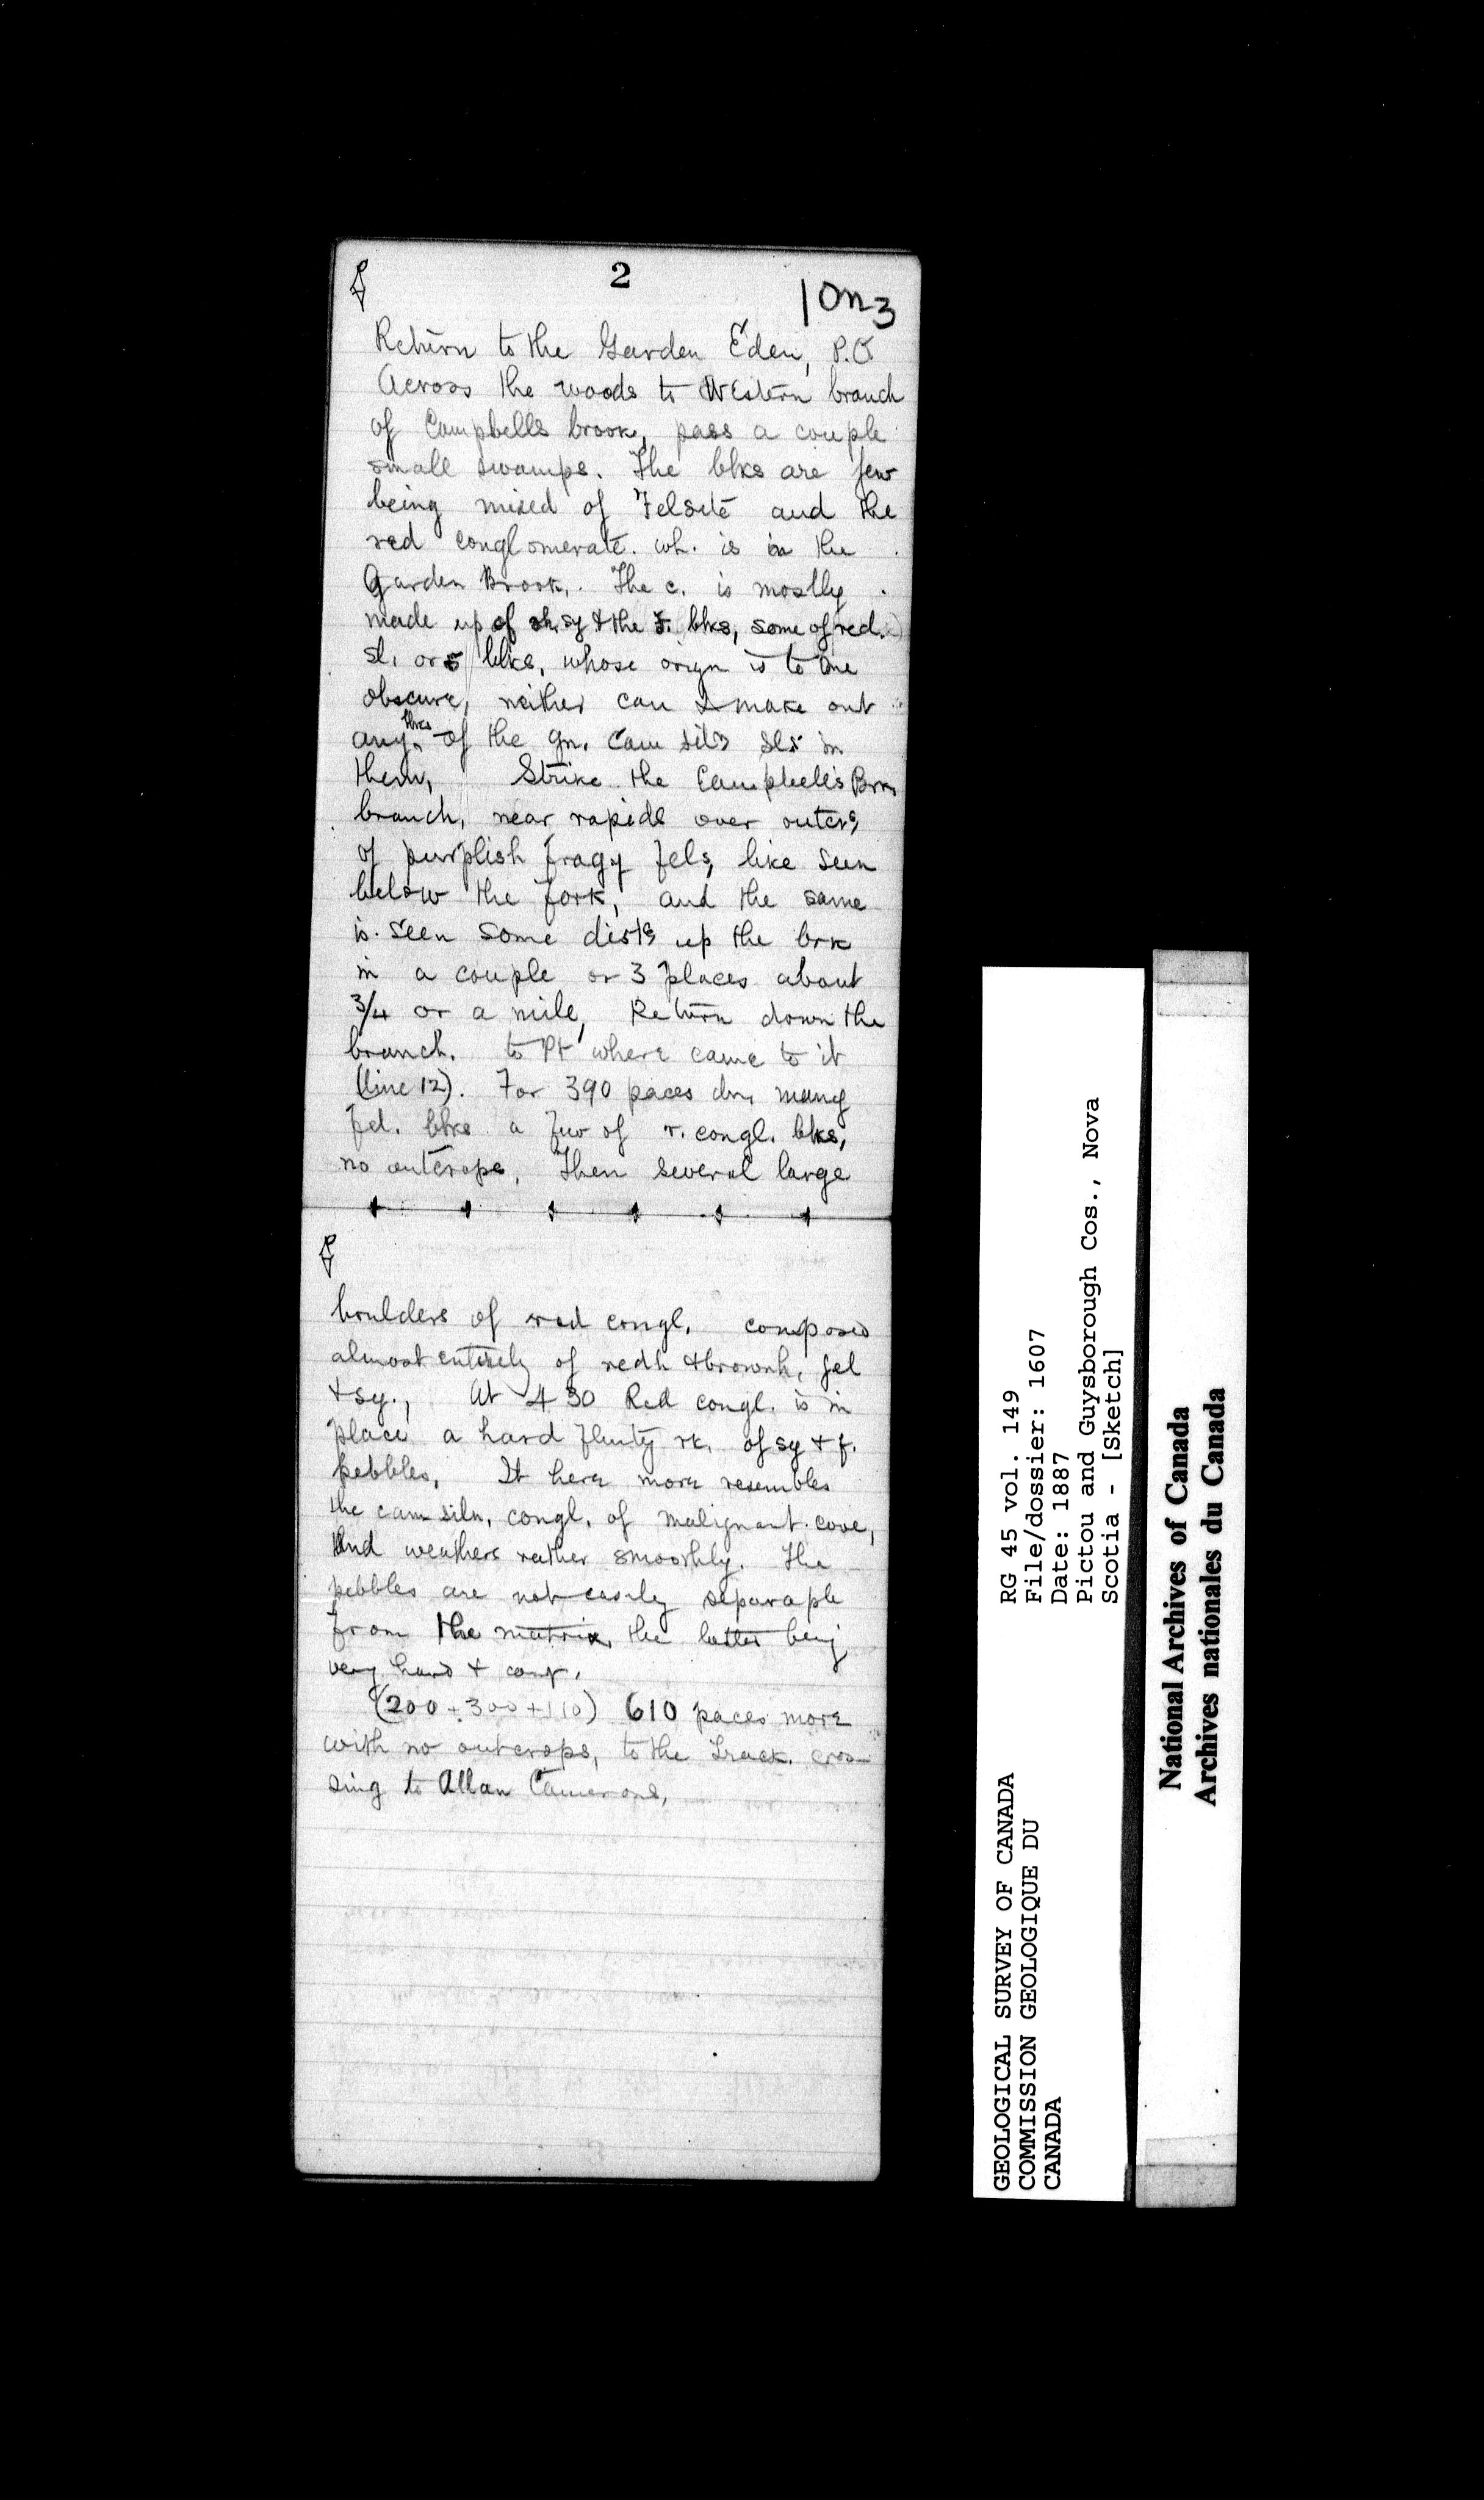 2
10n3
Return to the Garden Eden, P.O.
Across the woods to Western branch
of Campbells brook, pass a couple
small swamps. The blks are few
being mixed of Felsite and the
red conglomerate. wh. is in the
Garden Brook. The c. is mostly
made up of sy & the f. blks, some of red.
sl. or blks, whose orign is to me
obscure, neither can I make out
any of the gn. Cam sils sls in
them, Strike the Campbell's Brk
branch, near rapids over outcrs
of purplish fragy fels, like seen
below the fork, and the same
is seen some dists up the brk
in a couple or 3 places about
3/4 or a mile, Return down the
branch. to Pt where came to it
(line 12). For 390 paces dn, many
fel. blks a few of r. congl. blks,
no outcrops, Then several large
boulders of red congl. composed
almost entirely of redh & brownh, fel
& sy., At 430 Red congl. is in
place a hard flinty rk. of sy & f.
pebbles, It here more resembles
the cam siln. congl. of malignant cove,
and weathers rather smoothly. The
pebbles are not easily separaple
from the matrix, the latter being
very hard & comp.
(200 + 300 + 110) 610 paces more
with no outcrops, to the track cros-
sing to Allan Camerons,
GEOLOGICAL SURVEY OF CANADA
COMMISSION GEOLOGIQUE DU
CANADA
RG 45 vol. 149
File/dossier: 1607
Date: 1887
Pictou and Guysborough Cos., Nova
Scotia - [Sketch]
National Archives of Canada
Archives nationales du Canada